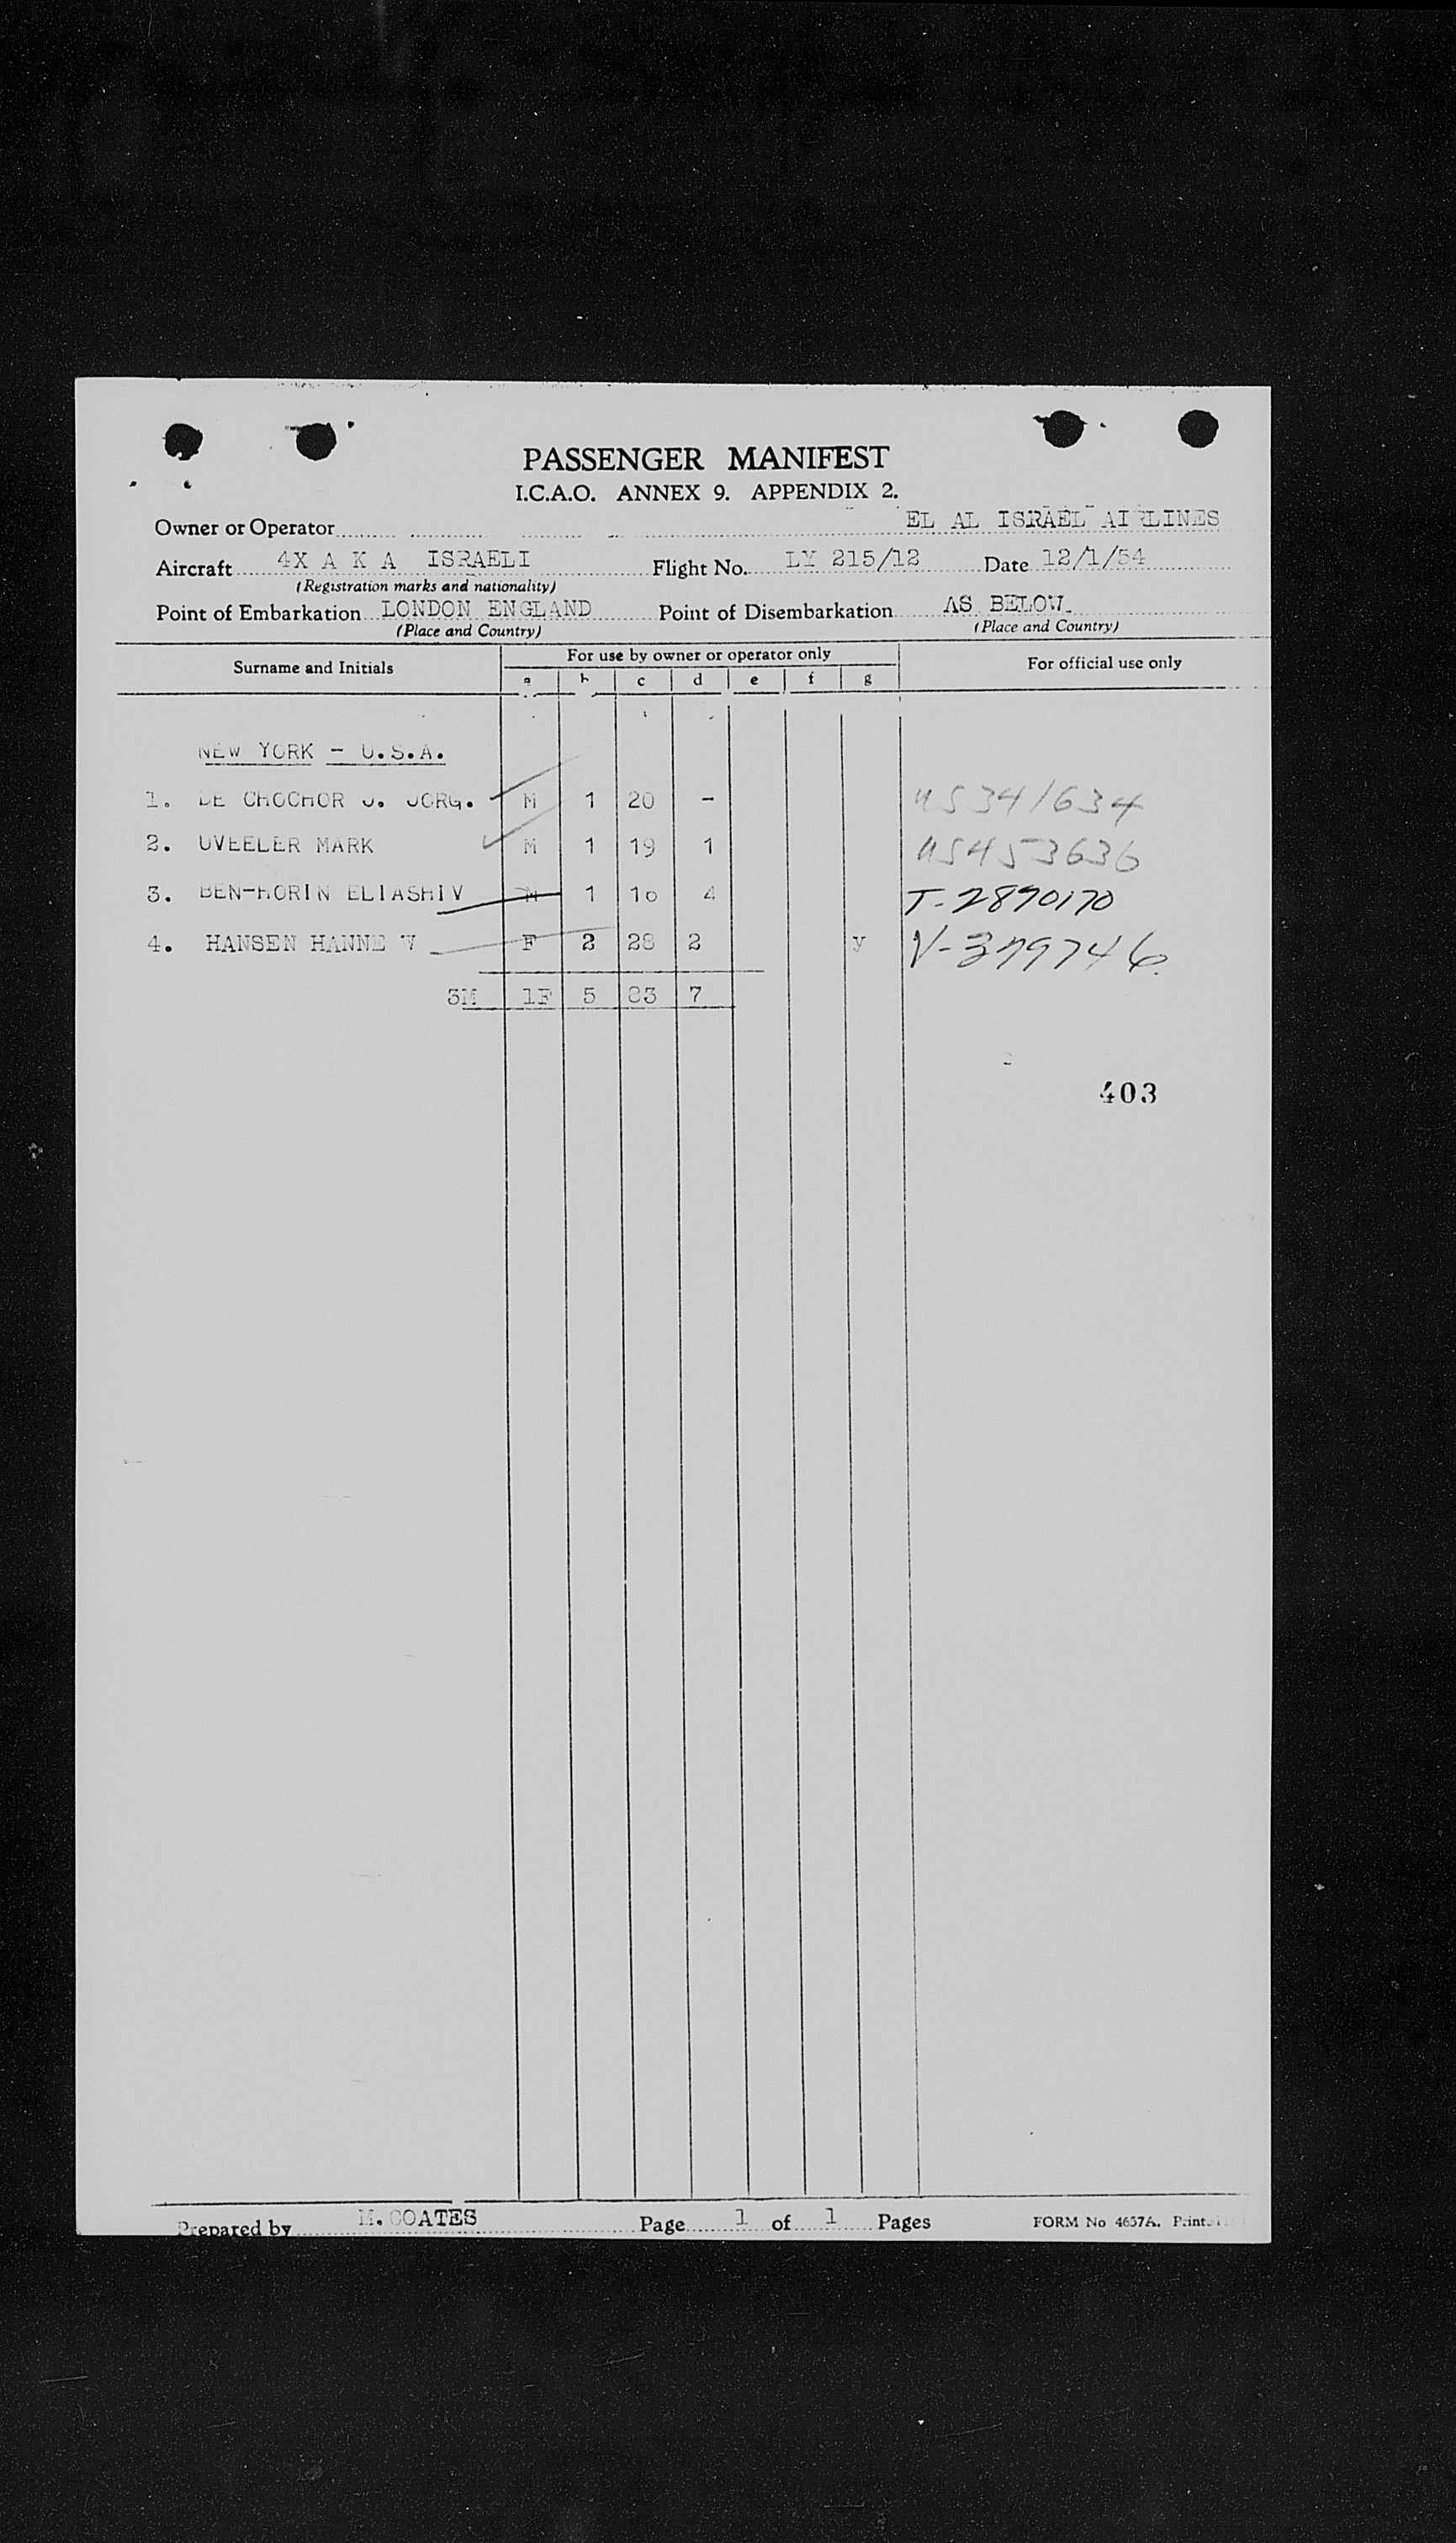 PASSENGER MANIFEST
I.C.A.O. ANNEX 9. APPENDIX 2.
Owner or Operator EL AL ISRAEL AIRLINES
Aircraft 4X A K A ISRAELI Flight No. LY 215/12 Date 12/1/54
(Registration marks and nationality)
Point of Embarkation LONDON ENGLAND Point of Disembarkation AS BELOW.
(Place and Country) (Place and Country)
Surname and Initials For use by owner or operator only For official use only
a b c d e f g
NEW YORK - U.S.A.
1. DE CHOCHOR J. JORG. M 1 20 - US341634
2. UVEELER MARK M 1 19 1 US453636
3. BEN-HORIN ELIASHIV M 1 16 4 T-2890170
4. HANSEN HANNE V F 2 28 2 y V-379746
3M 1F 5 83 7
403
Prepared by M. COATES Page 1 of 1 Pages FORM No 4657A.